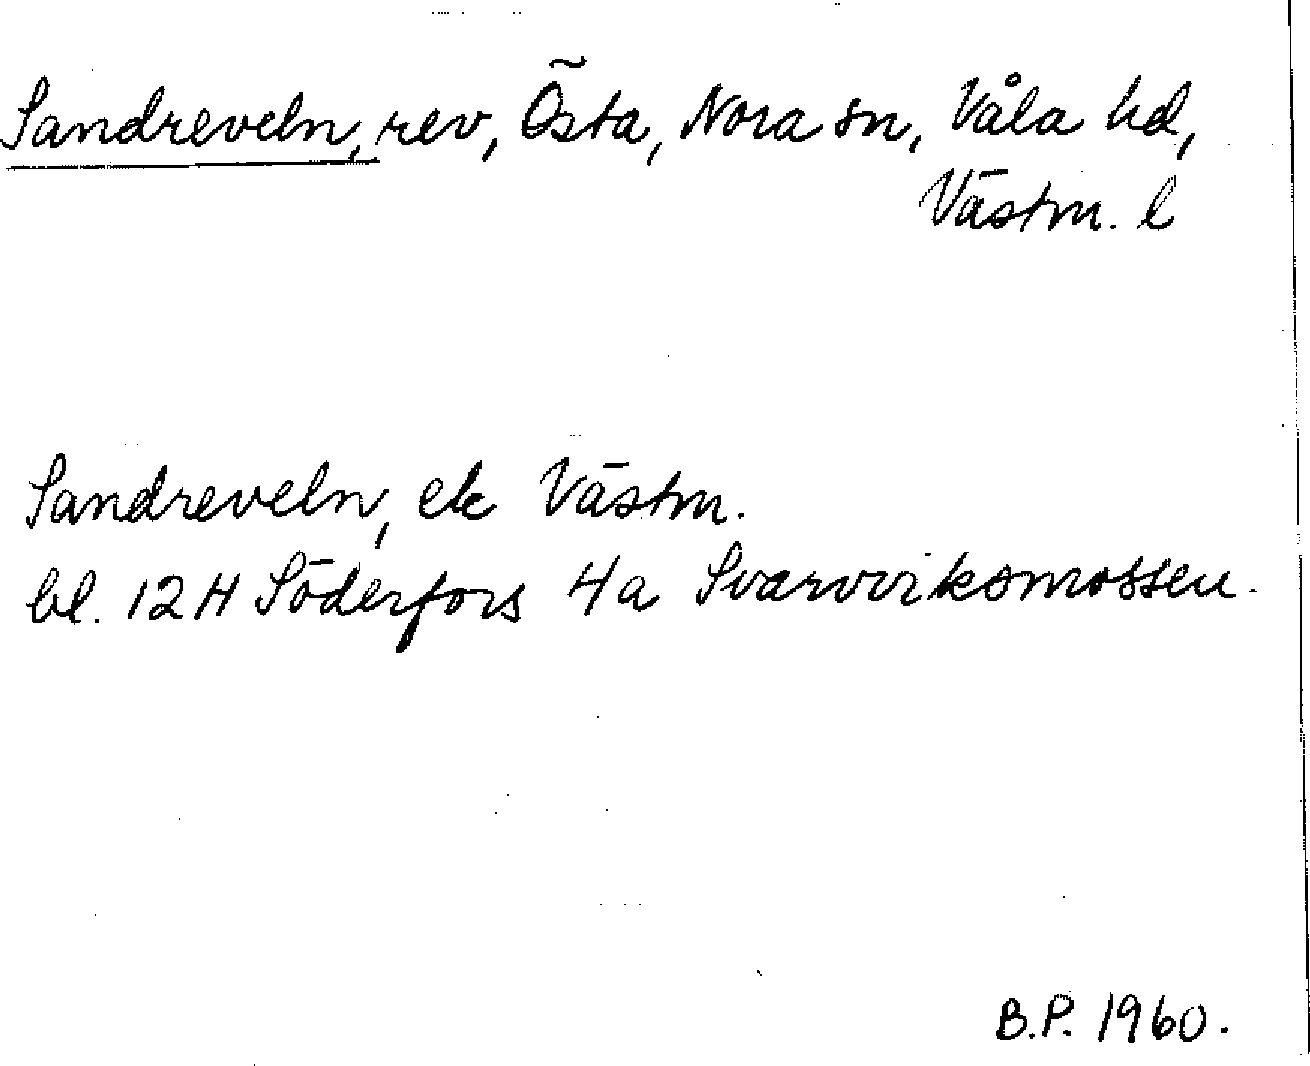 Sandreveln, rev, Östa, Nora sn, Våla hd,
Västm. l
Sandreveln, ek Västm.
bl. 12 H Söderfors 4a Svarvviksmossen.
B.P. 1960.